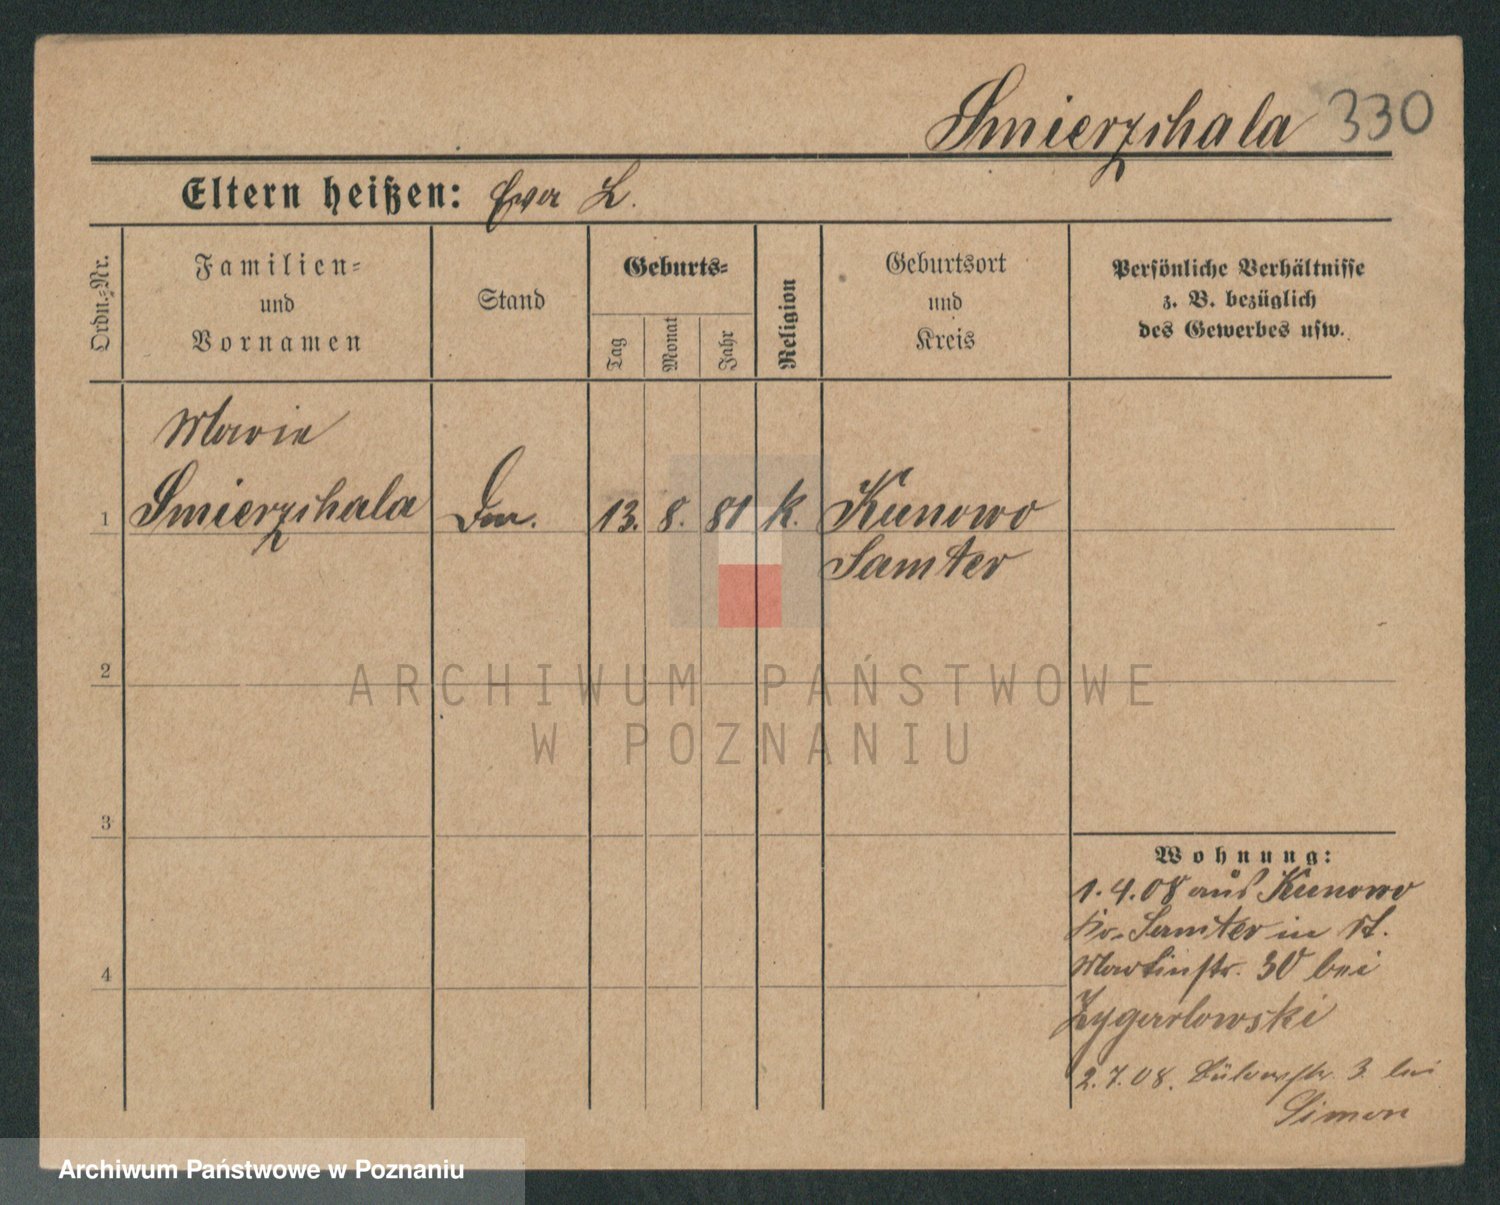 Smierzchala 330
Eltern heißen: Ewa L.
Ordn.=Nr.
Familien=
und
Vornamen
Stand
Geburts=
Tag
Monat
Jahr
Religion
Geburtsort
und
Kreis
Persönliche Verhältnisse
z. B. bezüglich
des Gewerbes usw.
Marie
1 Smierzchala 13. 8. 81 k. Kunowo
Samter
2
3
4
Wohnung:
1.4.08 aus Kunowo
Kr. Samter in St.
Martinstr. 30 bei
Zygarlowski
2.7.08. Bülowstr. 3 bei
Simon
ARCHIWUM PAŃSTWOWE
W POZNANIU
Archiwum Państwowe w Poznaniu